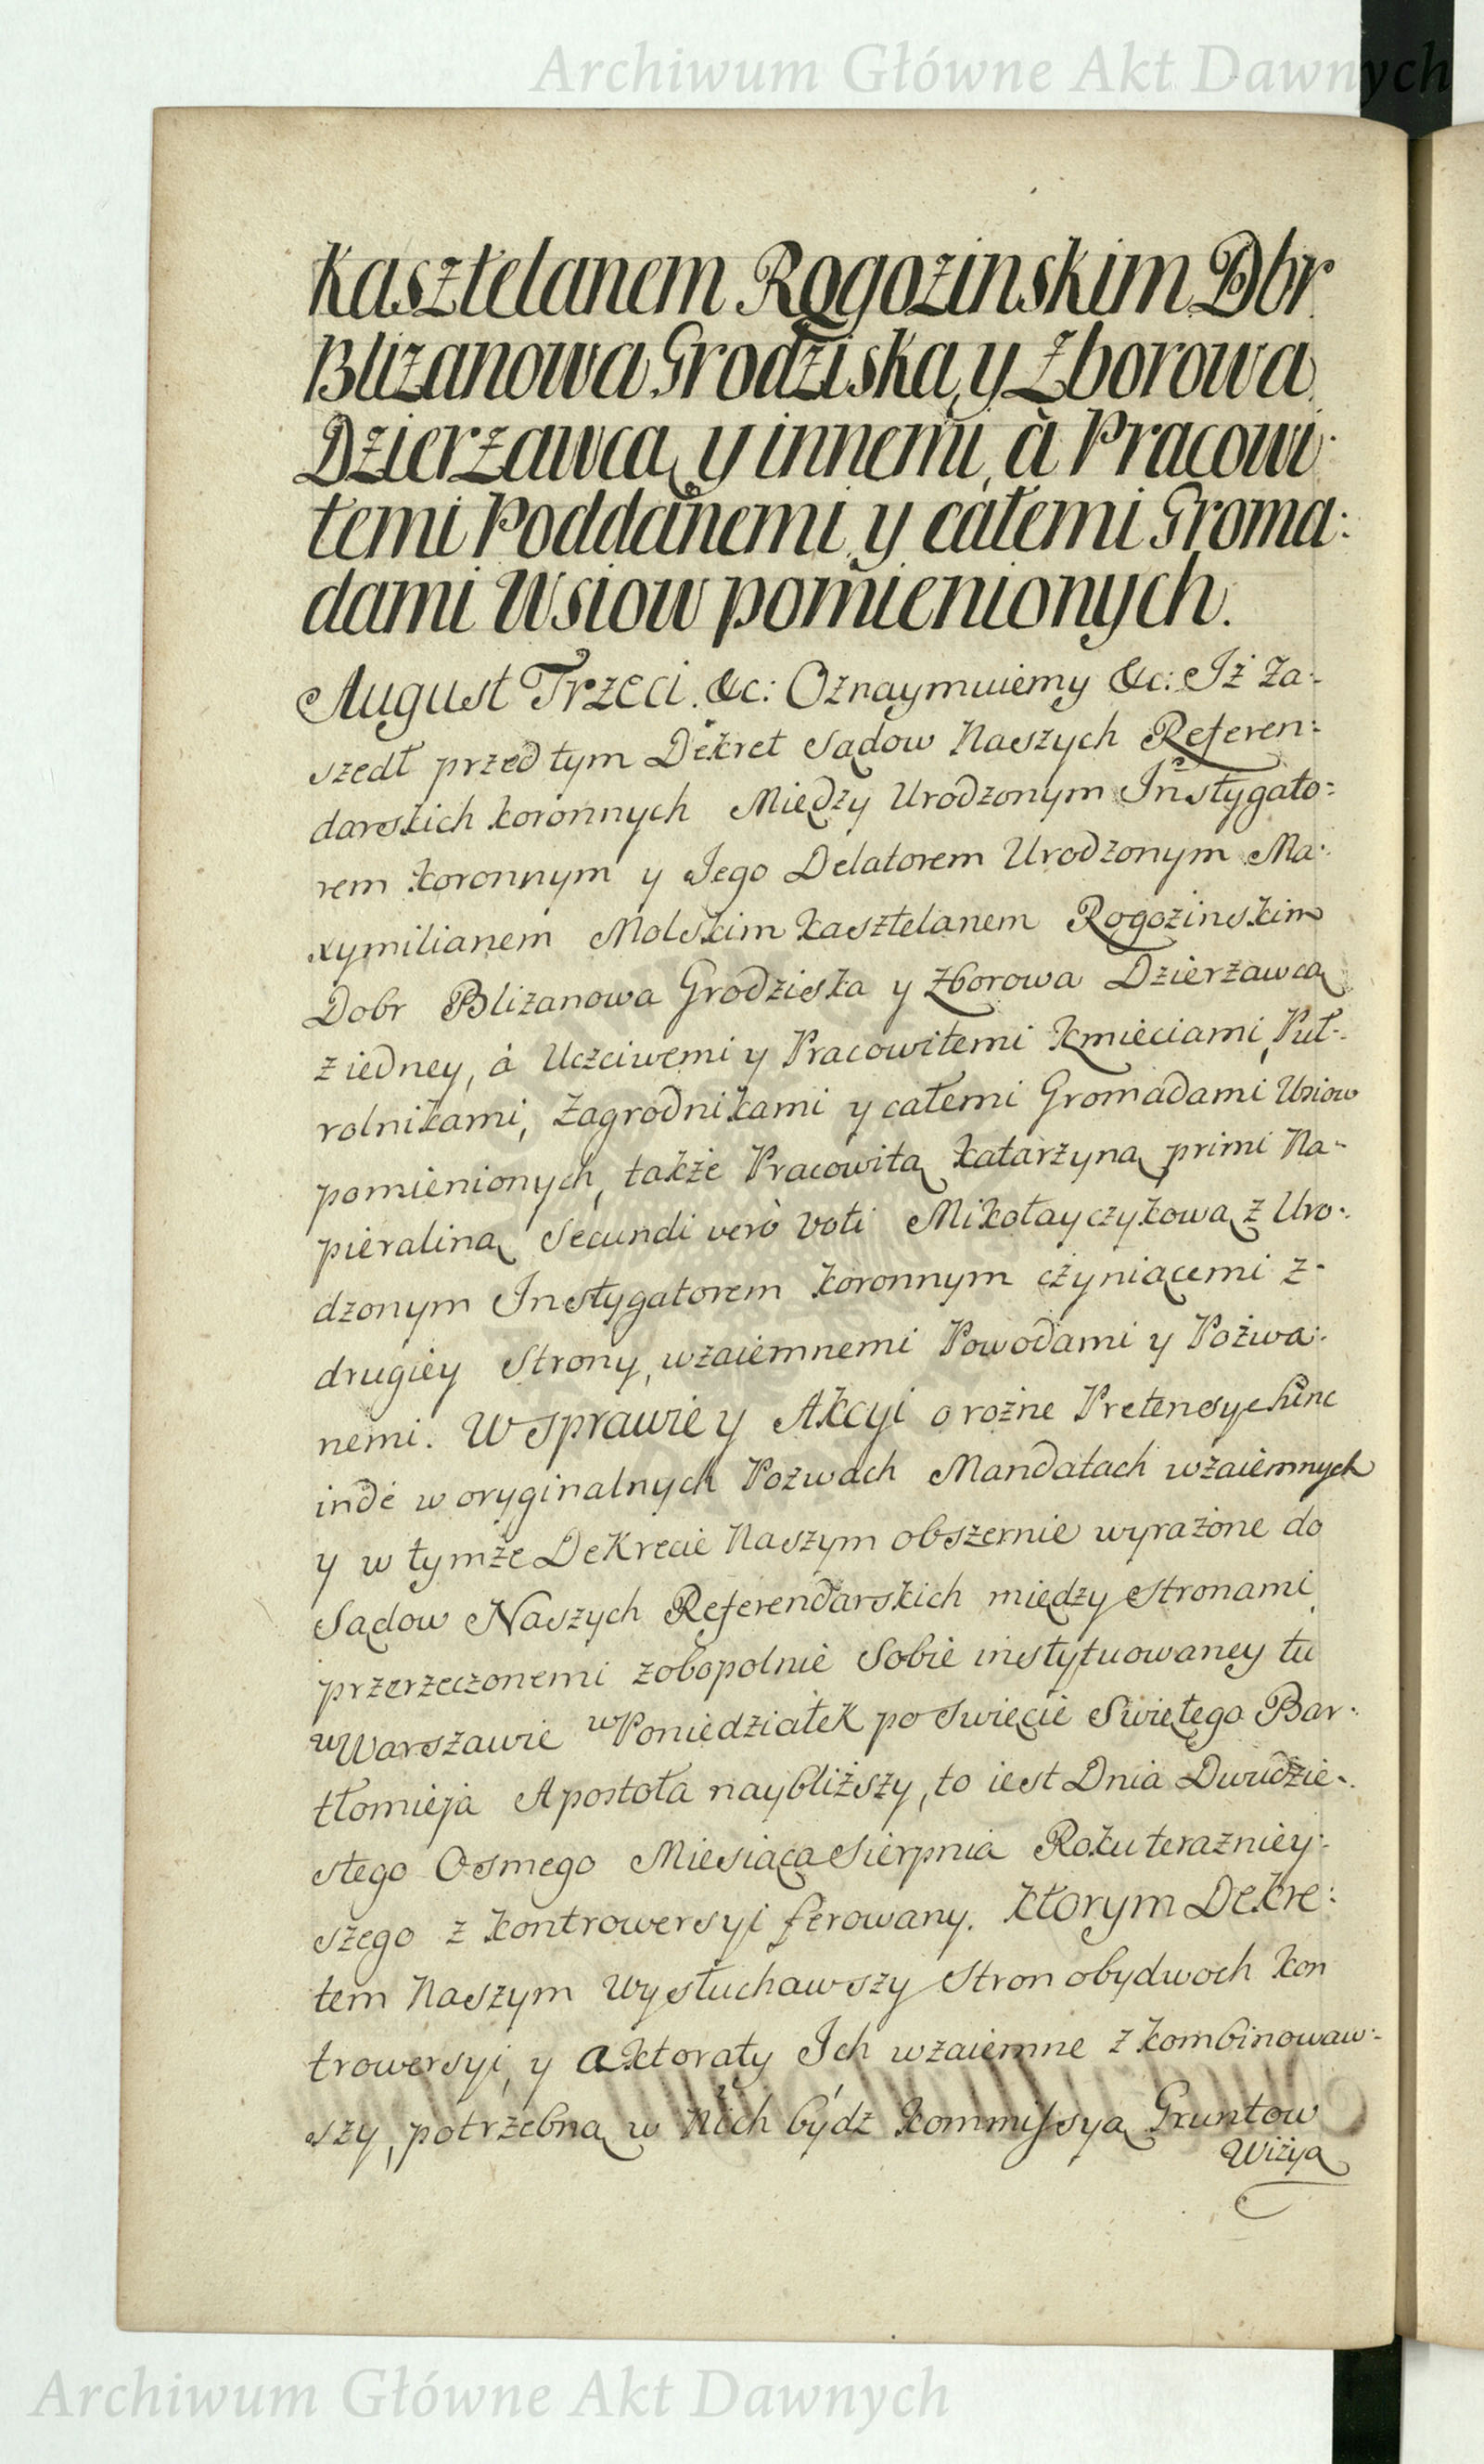 Archiwum Główne Akt Dawnych
Kasztelanem Rogozinskim Dbr
Blizanowa Grodziska, y Zborowa
Dzierzawcą y innemi, à Pracowi:
temi Poddanemi y całemi Groma:
dami Wsiow pomienionych.
August Trzeci. &c: Oznaymuiemy &c: Iż Za:
szedł przed tym Dekret Sądow Naszych Referen:
darskich koronnych Między Urodzonym Instygato:
rem koronnym y Jego Delatorem Urodzonym Ma:
xymilianem Molskim kasztelanem Rogozinskim
Dobr Blizanowa Grodziska y Zborowa Dzierzawcą
z iedney, à Uczciwemi y Pracowitemi kmieciami, Puł:
rolnikami, Zagrodnikami y całemi Gromadami Wsiow
pomienionych, także Pracowitą katarzyną primi Na-
pieraliną Secundi verò voti Mikołayczykową z Uro:
dzonym Instygatorem koronnym czyniącemi z-
drugiey Strony, wzaiemnemi Powodami y Pozwa:
nemi. W sprawie y Akcyi o rożne Pretensye hinc
inde w oryginalnych Pozwach Mandatach wzaiemnych
y w tymże DeKrecie Naszym obszernie wyrażone do
Sądow Naszych Referendarskich między Stronami
przerzeczonemi zobopolnie Sobie instytuowaney tu
w Warszawie w Poniedziałek po Swięcie Swiętego Bar:
tłomieja Apostoła naybliższy, to iest Dnia Dwudzie:
stego Osmego Miesiąca Sierpnia Roku terazniey:
szego z kontrowersyi ferowany. Ktorym Dekre:
tem Naszym Wysłuchawszy Stron obydwoch kon
trowersyi, y aktoraty Ich wzaiemne zkombinowaw:
szy, potrzebną w Nich bydź kommissyą Gruntow
Wizyą
Archiwum Główne Akt Dawnych